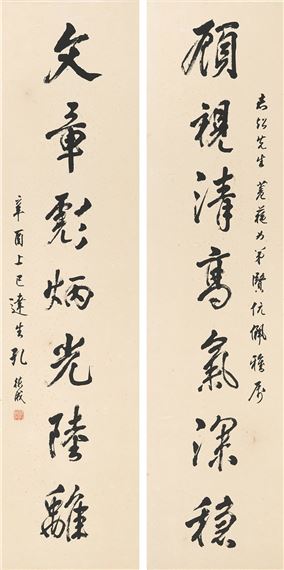 先生賢伉儷雅屬
顧視清高氣深穩
文章彪炳光陸離
辛酉上巳達生孔德成